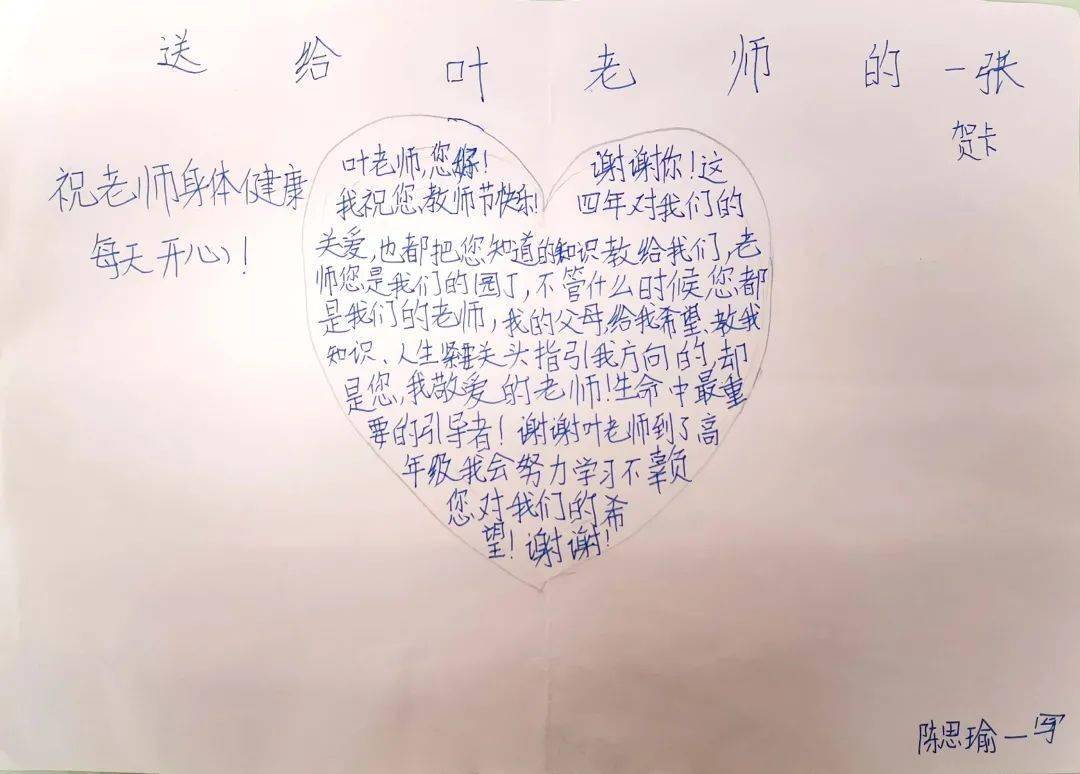 送给叶老师的一张
贺卡
祝老师身体健康
每天开心!
叶老师,您好! 谢谢你!这
我祝您教师节快乐! 四年对我们的
关爱,也都把您知道的知识教给我们,老
师您是我们的园丁,不管什么时候您都
是我们的老师,我的父母,给我希望、教我
知识、人生紧要关头指引我方向的,却
是您,我敬爱的老师!生命中最重
要的引导者!谢谢叶老师到了高
年级我会努力学习不辜负
您对我们的希
望!谢谢!
陈思瑜一写